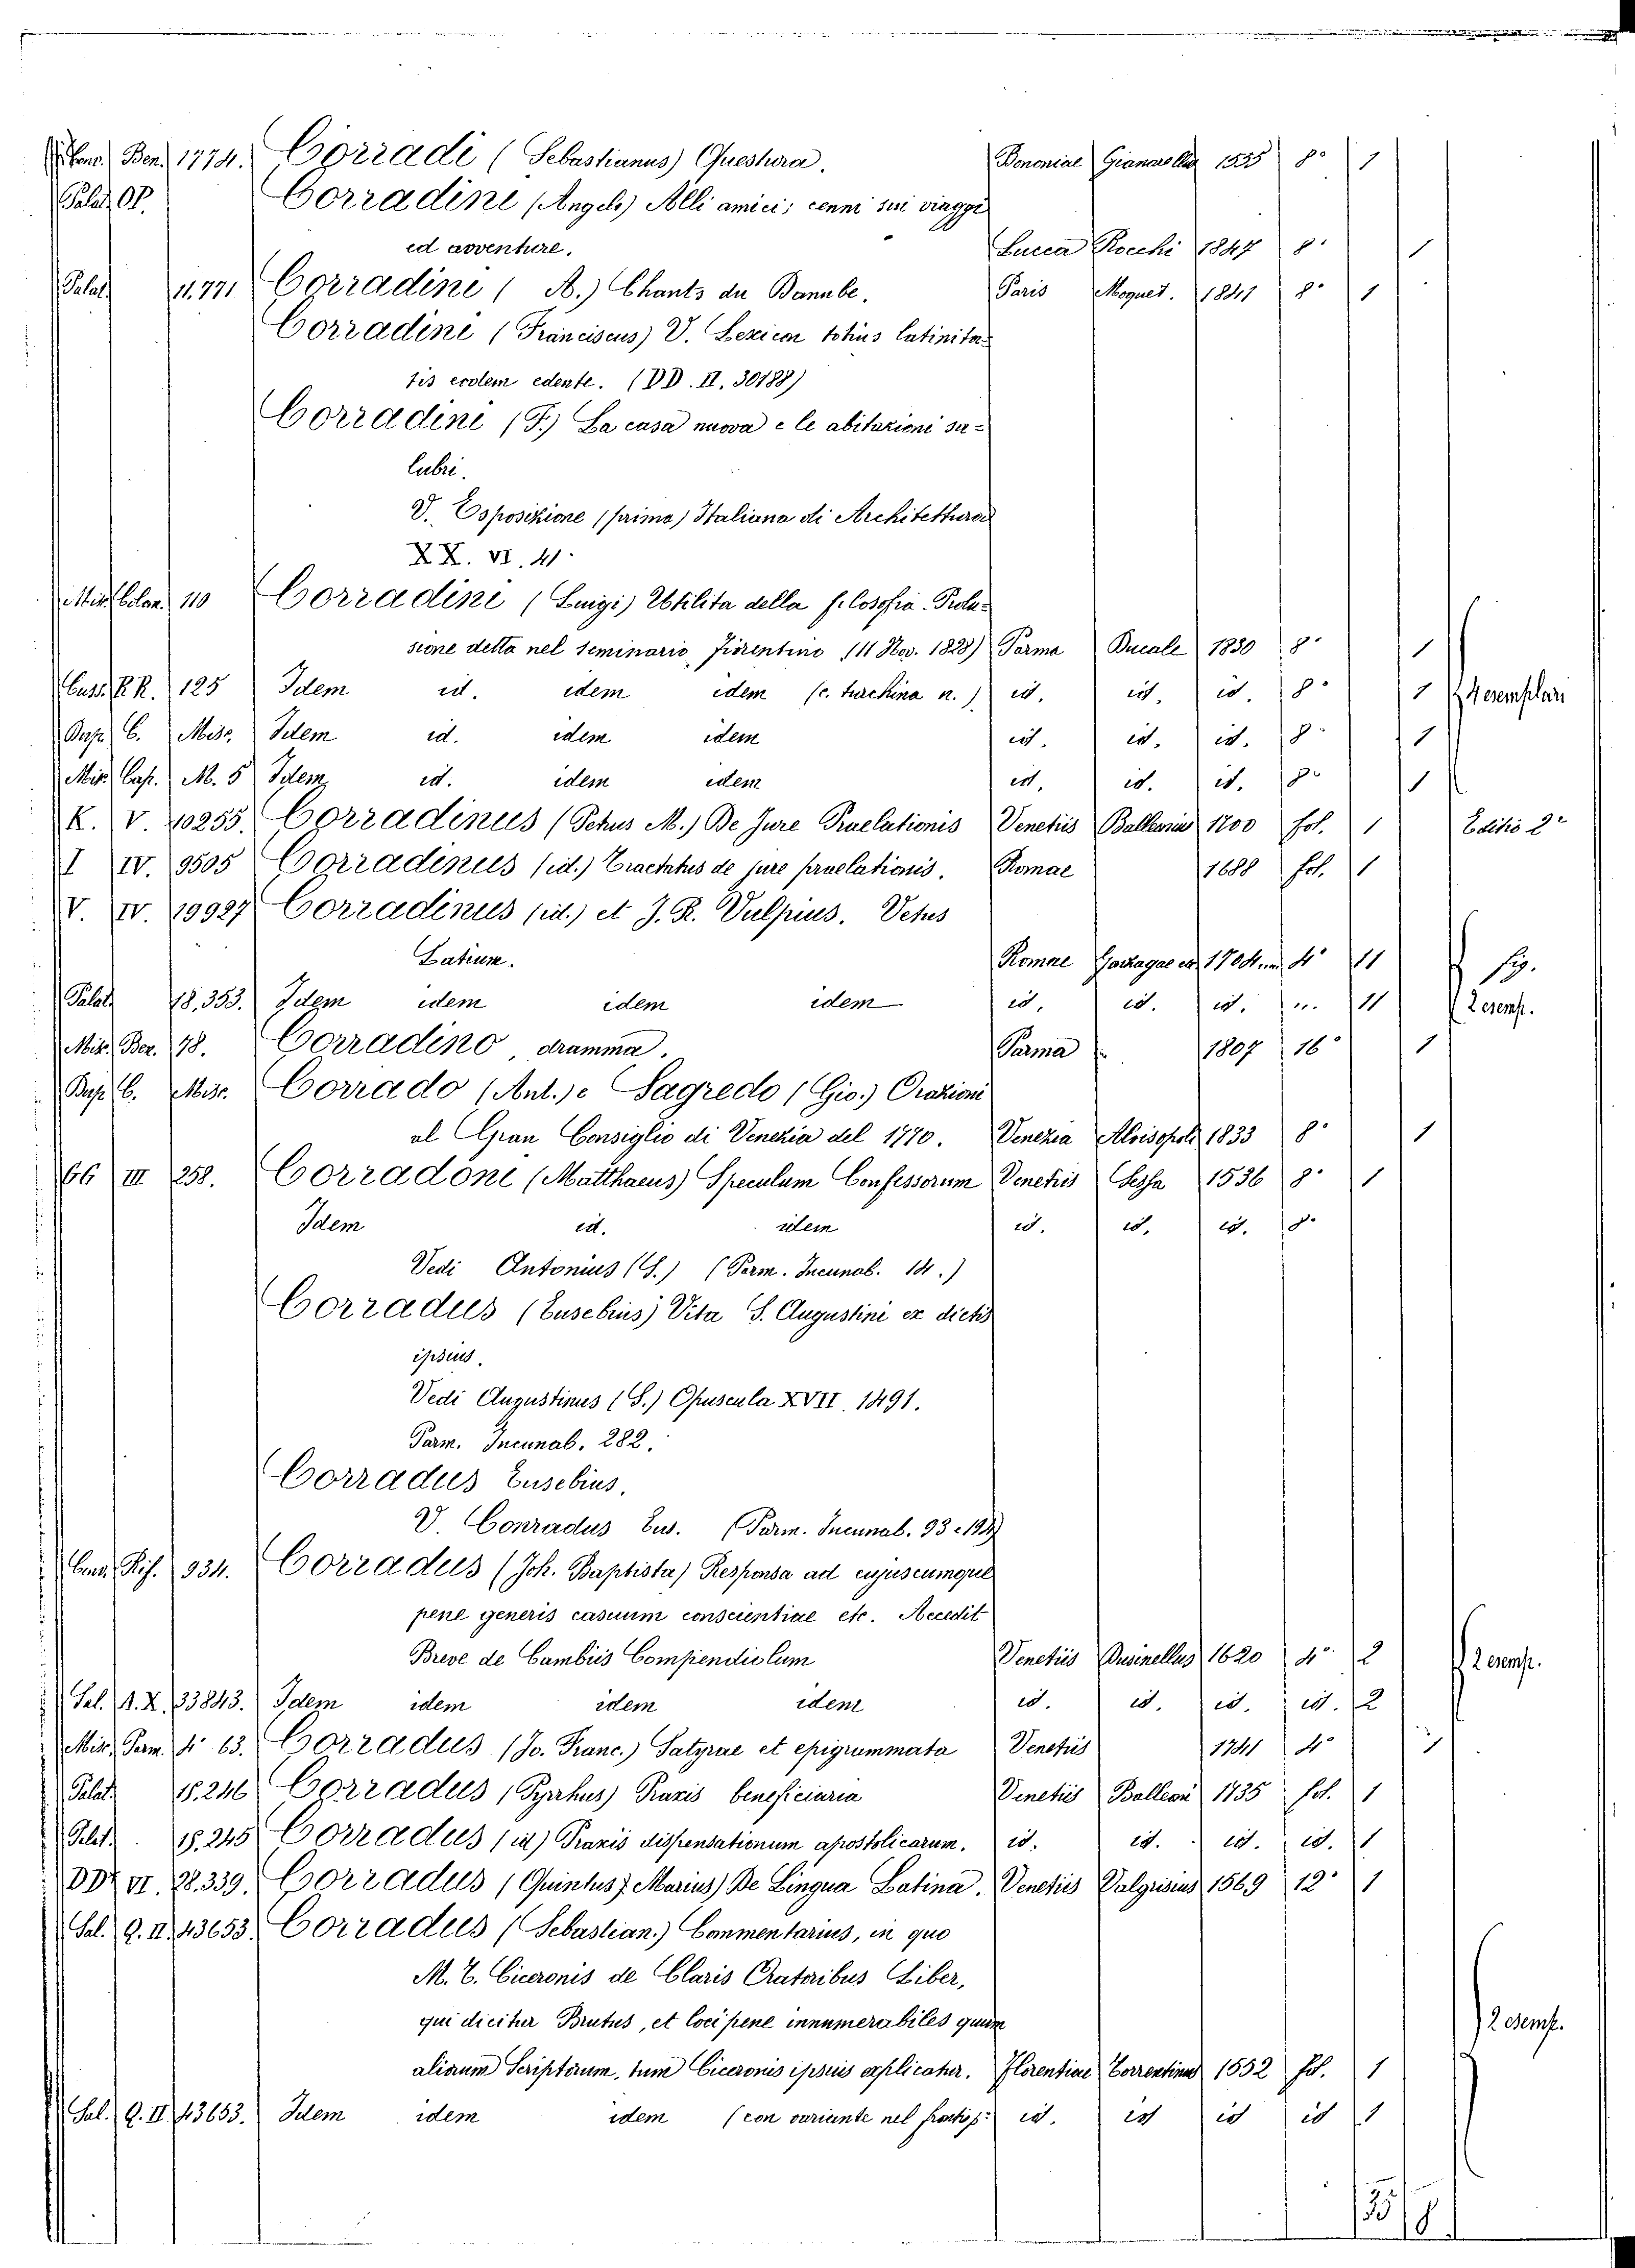 Conv. Ben. 1774. Corradi (Sebastianus) Questura. Bononiae 1555 8° 1
Palat. Op. Corradini (Angelo) Alli amici; cenni sui viaggi
ed avventure. Lucca Rocchi 1847 8° 1
Palat. 11.771 Corradini (A.) Chants du Danube. Paris Moquet. 1841 8° 1
Corradini (Franciscus) V. Lexicon totius latinita-
tis eodem edente. (DD. II. 30188)
Corradini (F.) La casa nuova e le abitazioni sa-
lubri.
V. Esposizione (prima) Italiana di Architettura
XX. VI. 41.
Misc. Colon. 110 Corradini (Luigi) Utilita della filosofia. Prolu-
sione detta nel seminario fiorentino (11 Nov. 1828) Parma Ducale 1830 8° 1
R.R. 125 Idem id. idem idem (c. turchina n.) id. id. id. 8° 1 4 esemplari
C. Misc. Idem id. idem idem id. id. id. 8° 1
Misc. Cap. M. 5 Idem id. idem idem id. id. id. 8° 1
K. V. 10255. Corradinus (Petrus M.) De Jure Praelationis Venetiis 1700 fol. 1 Editio 2ª
I IV. 9505 Corradinus (id.) Tractatus de jure praelationis. Romae 1688 fol. 1
V. IV. 19927 Corradinus (id.) et J. R. Vulpius. Vetus
Latium. Romae 4° 11 fig.
Palat. 18,353. Idem idem idem idem id. id. id. " 11 2 esemp.
Misc. Ber. 78. Corradino, dramma. Parma 1807 16° 1
C. Misc. Corrado (Ant.) e Sagredo (Gio.) Orazioni
al Gran Consiglio di Venezia del 1770. Venezia Alvisopoli 1833 8° 1
GG III 258. Corradone (Matthaeus) Speculum Confessorum Venetiis Sessa 1536 8° 1
Idem id. idem id. id. id. 8°
Vedi Antonius (S.) (Parm. Incunab. 14.)
Corradus (Eusebius) Vita S. Augustini ex dictis
ipsius.
Vedi Augustinus (S.) Opuscula XVII. 1491.
Parm. Incunab. 282.
Corradus Eusebius.
V. Conradus Eus. (Parm. Incunab. 93
Conv. Rif. 934. Corradus (Joh. Baptista) Responsa ad cujuscumque
pene generis casuum conscientiae etc. Accedit
Breve de Cambiis Compendiolum Venetiis Dusinellus 1620 4° 2 2 esemp.
Sal. A. X. 33843. Idem idem idem idem id. id. id. id. 2
Misc. Parm. 4° 63. Corradus (Jo. Franc.) Satyrae et epigrammata Venetiis 1741 4° 1
Palat. 15.246 Corradus (Pyrrhus) Praxis beneficiaria Venetiis Balleoni 1735 fol. 1
Palat. 15.245 Corradus (id) Praxis dispensationum apostolicarum. id. id. id. id. 1
DD. VI. 28.339. Corradus (Quintus Marius) De Lingua Latina. Venetiis Valgrisius 1569 12° 1
Sal. Q. II. 43653. Corradus (Sebastian.) Commentarius, in quo
M. T. Ciceronis de Claris Oratoribus Liber,
qui dicitur Brutus, et loci pene innumerabiles quum
aliorum Scriptorum, tum Ciceronis ipsius explicatur. Florentiae Torrentinus 1552 fol. 1 2 esemp.
Sal. Q. II. 43653. Idem idem idem (con variante nel frontisp. id. id id id 1
35 8